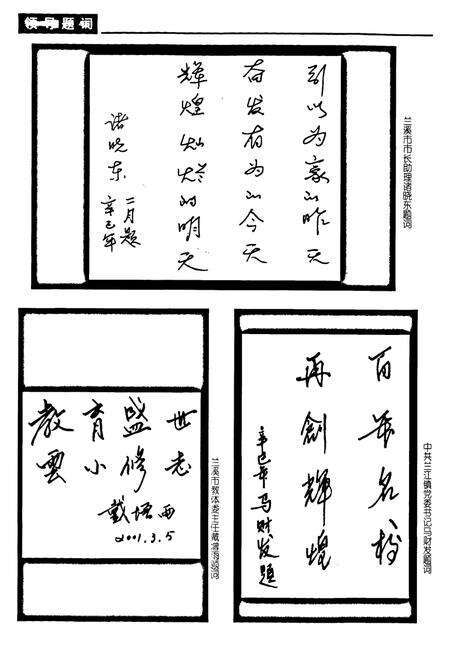 领导题词
引以为豪的昨天
奋发有为的今天
辉煌灿烂的明天
诸晓东
二月题
辛巳年
兰溪市市长助理诸晓东题词
教育盛世
雲小修志
戴增
2001.3.5
兰溪市教体委主任戴增题词
百年名校
再創輝煌
辛巳年马财发題
中共兰江镇党委书记马财发题词